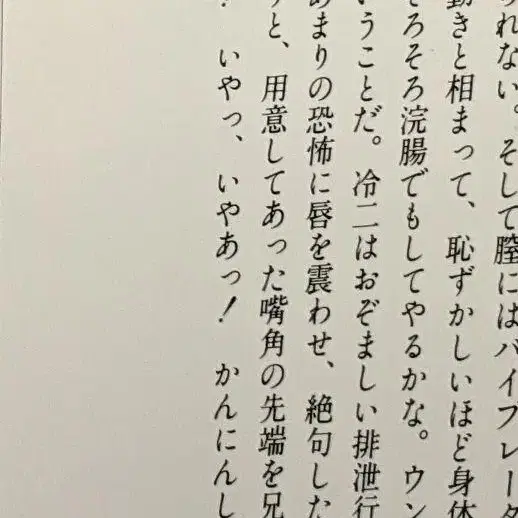 られない。そして膣にはバイブレータ
動きと相まって、恥ずかしいほど身体
そろそろ浣腸でもしてやるかな。ウン
うことだ。冷二はおぞましい排泄行
あまりの恐怖に唇を震わせ、絶句した
と、用意してあった嘴角の先端を兄
いやっ、いやあっ! かんにんし